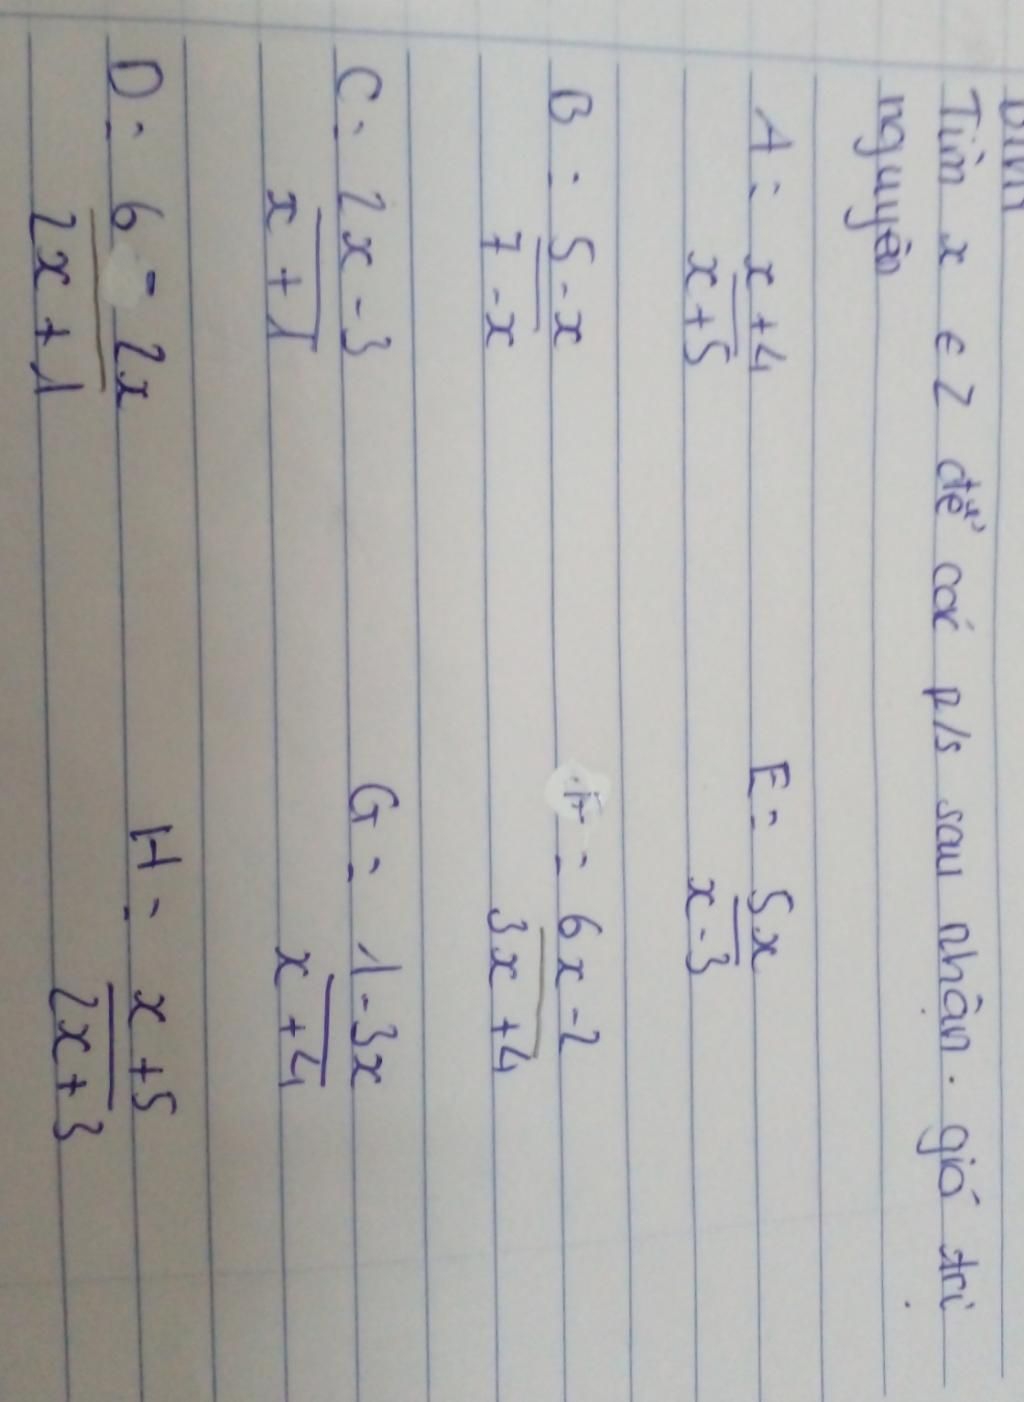 Tìm x ∈ Z để các p/s sau nhận giá trị
nguyên
A = x+4 / x+5 E = 5x / x-3
B = 5-x / 7-x = 6x-2 / 3x+4
C = 2x-3 / x+1 G = 1-3x / x+4
D = 6-2x / 2x+1 H = x+5 / 2x+3